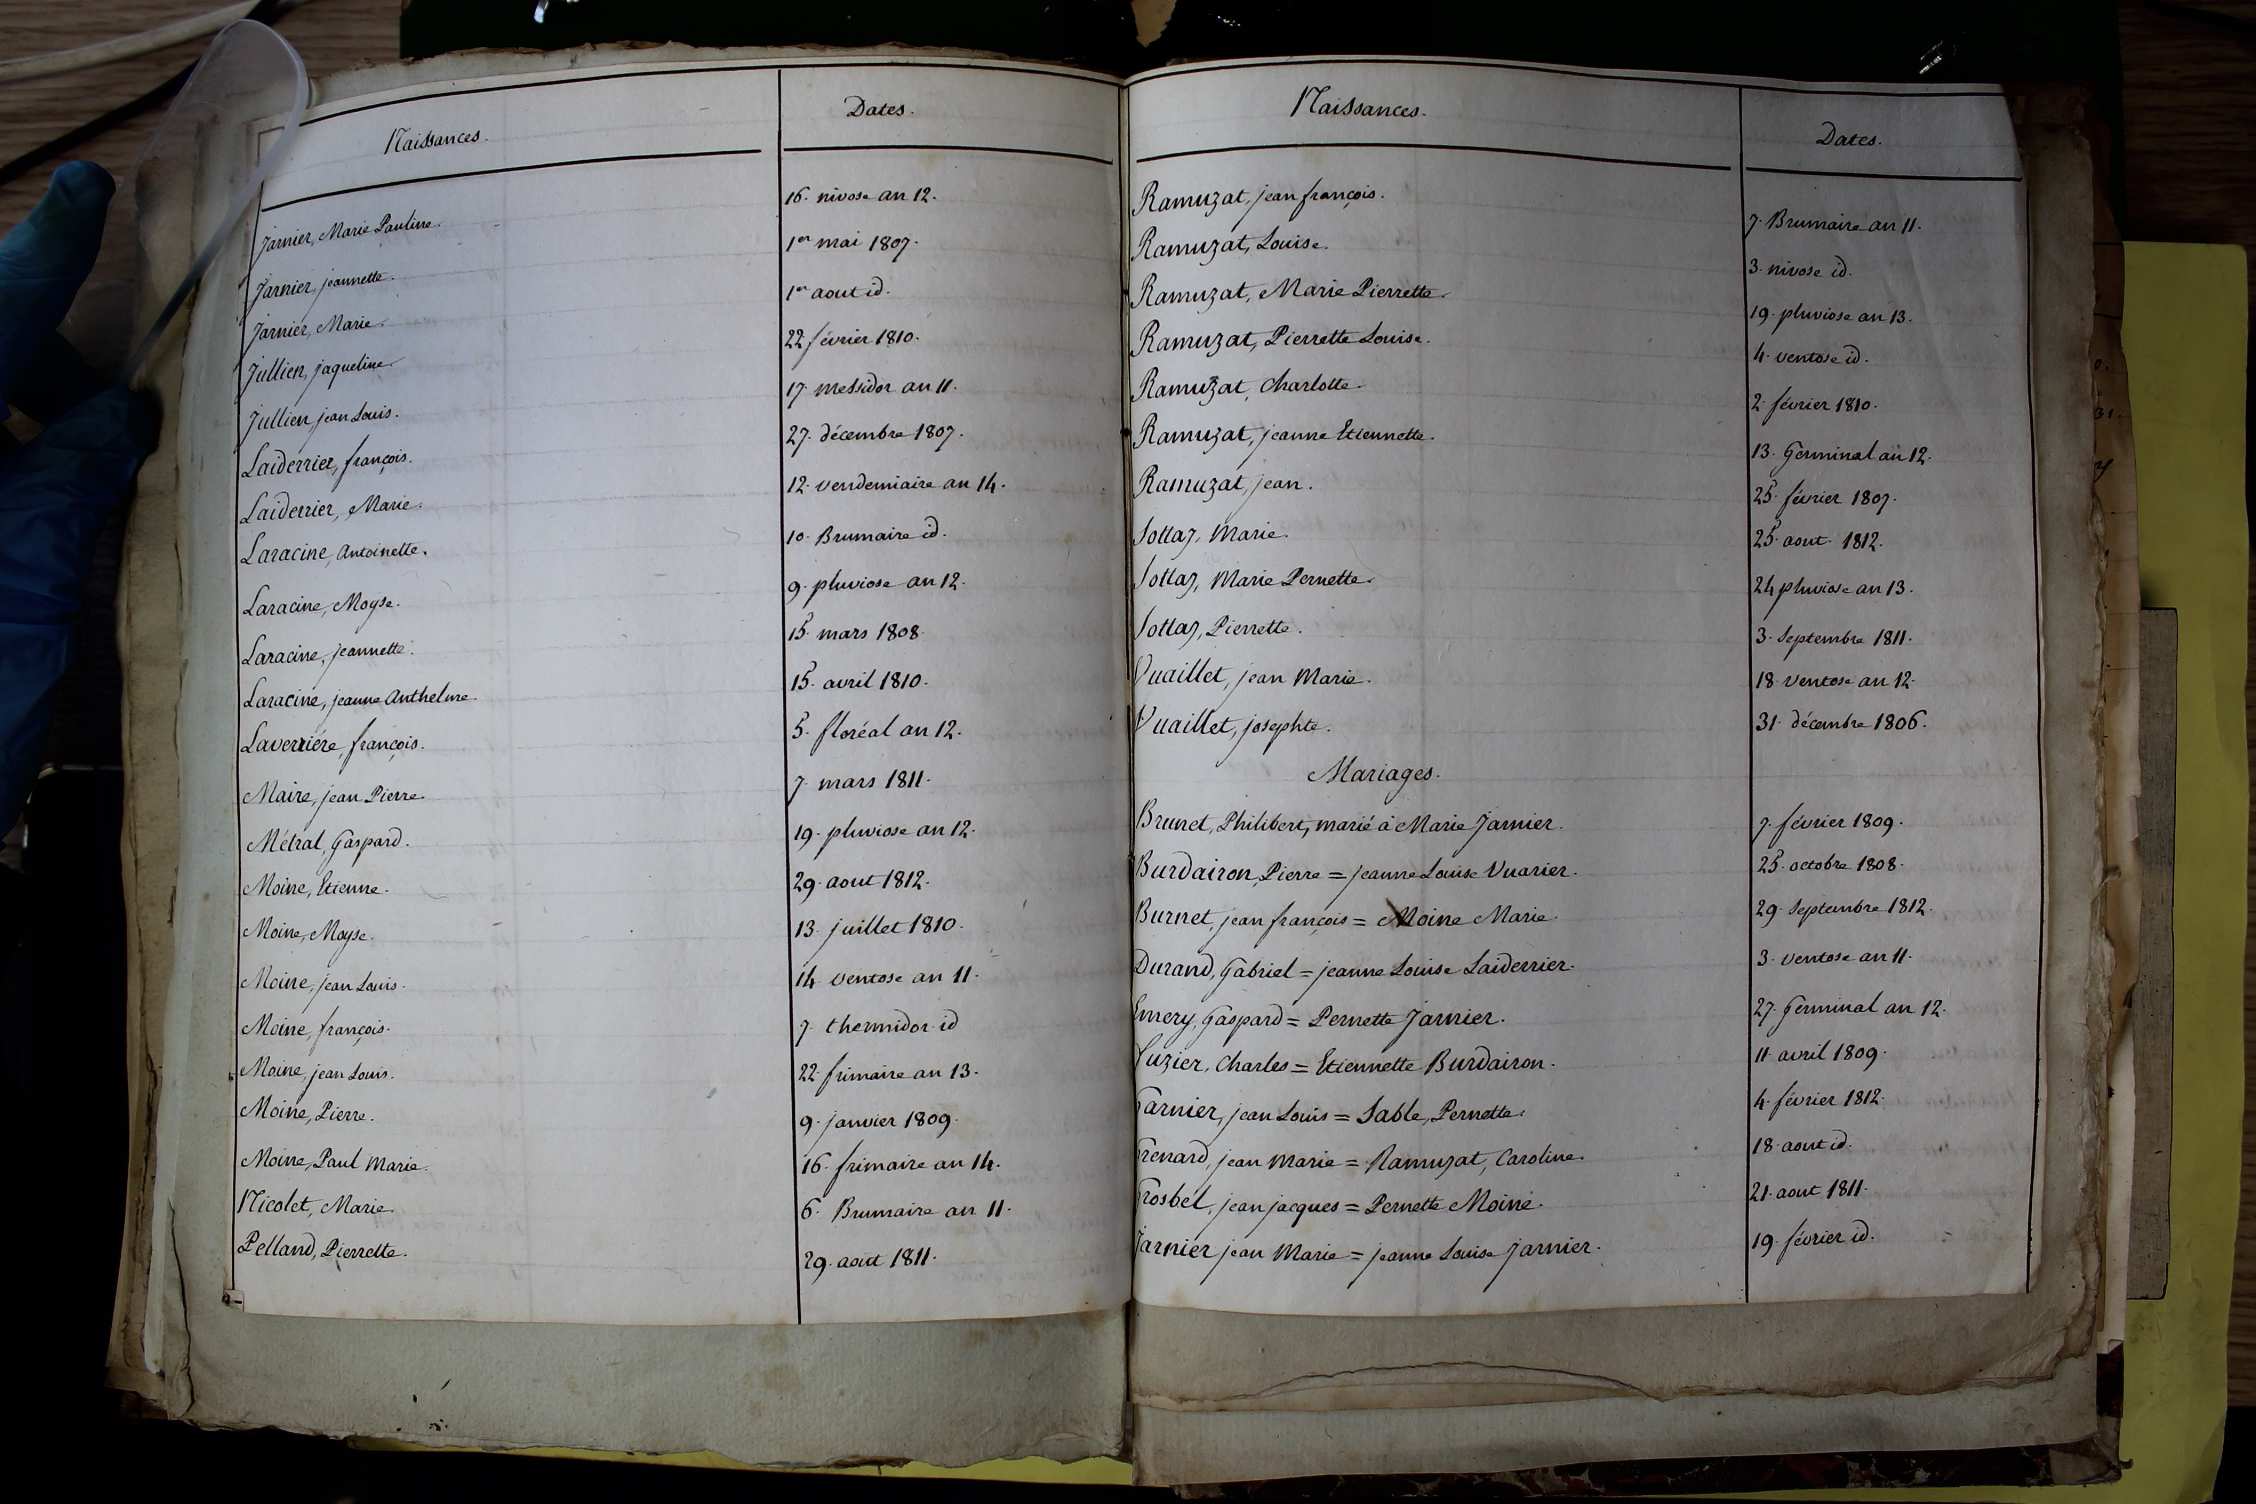 Naissances. Dates.
Jarnier, Marie Pauline. 16. nivose an 12.
Jarnier, jeannette. 1er mai 1807.
Jarnier, Marie. 1er aout id.
Jullien, jaqueline. 22 février 1810.
Jullien, jean Louis. 17. messidor an 11.
Laiderrier, françois. 27. décembre 1807.
Laiderrier, Marie. 12. vendemiaire an 14.
Laracine, Antoinette. 10. Brumaire id.
Laracine, Moyse. 9. pluviose an 12.
Laracine, jeannette. 15. mars 1808.
Laracine, jeanne Anthelme. 15. avril 1810.
Laverriére, françois. 5. floréal an 12.
Maire, jean Pierre. 7. mars 1811.
Métral, Gaspard. 19. pluviose an 12.
Moine, Etienne. 29. aout 1812.
Moine, Moyse. 13. juillet 1810.
Moine, jean Louis. 14 ventose an 11.
Moine, françois. 7. thermidor id
Moine, jean Louis. 22 frimaire an 13.
Moine, Pierre. 9. janvier 1809.
Moine, Paul Marie. 16. frimaire an 14.
Nicolet, Marie. 6. Brumaire an 11.
Pelland, Pierrette. 29. aout 1811.
Naissances. Dates.
Ramuzat, jean françois. 7. Brumaire an 11.
Ramuzat, Louise. 3. nivose id.
Ramuzat, Marie Pierrette. 19. pluviose an 13.
Ramuzat, Pierrette Louise. 4. ventose id.
Ramuzat, Charlotte. 2. février 1810.
Ramuzat, jeanne Etiennette. 13. Germinal an 12.
Ramuzat, jean. 25. février 1807.
Sottaz, Marie. 25. aout. 1812.
Sottaz, Marie Pernette. 24 pluviose an 13.
Sottaz, Pierrette. 3. Septembre 1811.
Vuaillet, jean Marie. 18 ventose an 12.
Vuaillet, josephte. 31. décembre 1806.
Mariages.
Brunet, Philibert, marié à Marie Jarnier. 7. février 1809.
Burdairon, Pierre = jeanne Louise Vuarier. 25. octobre 1808.
Burnet, jean françois = Moine Marie. 29. Septembre 1812.
Durand, Gabriel = jeanne Louise Laiderrier. 3. ventose an 11.
Emery, Gaspard = Pernette Jarnier. 27. Germinal an 12.
Fuzier, Charles = Etiennette Burdairon. 11. avril 1809.
Garnier, jean Louis = Sable, Pernette. 4. février 1812.
Grenard, jean Marie = Ramuzat, Caroline. 18. aout id.
Grosbel, jean jacques = Pernette Moine. 21. aout 1811.
Jarnier jean Marie = jeanne Louise Jarnier. 19. février id.